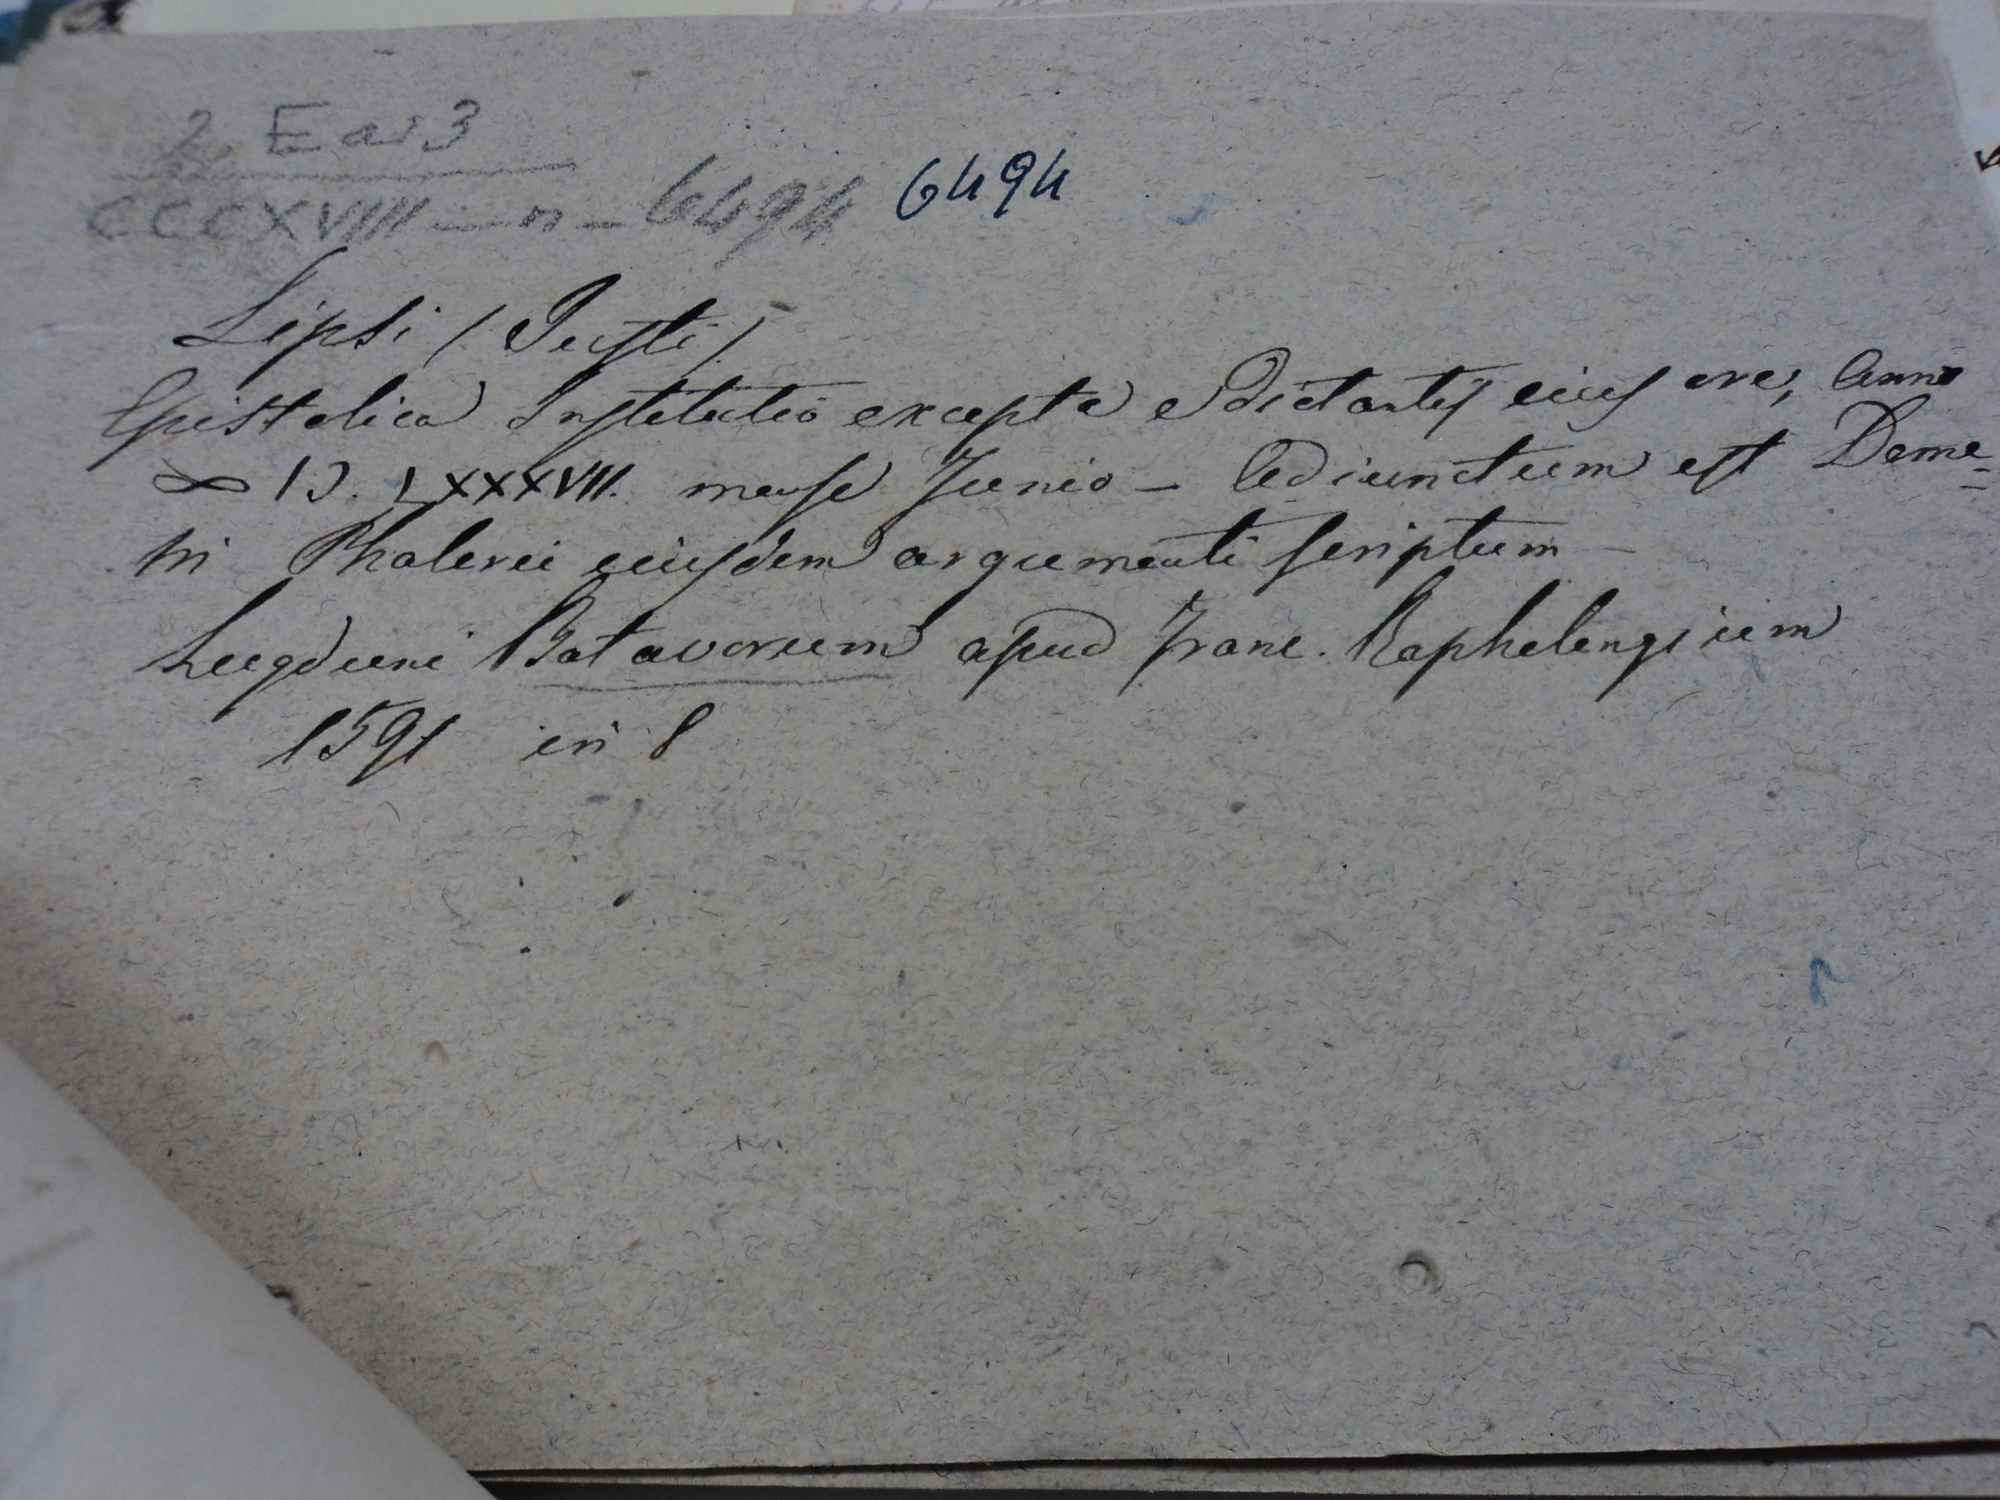 2 E ar 3
CCCXVIII — n — 6494 6494
Lipsi (Justi)
Epistolica Institutio excepta e dictantis eius ore, Anno
∞ IↃ. LXXXVII. mense Junio — Adiunctum est Deme=
tri Phalerei eiusdem argumenti scriptum —
Lugduni Batavorum apud Franc. Raphelengium
1591 in 8